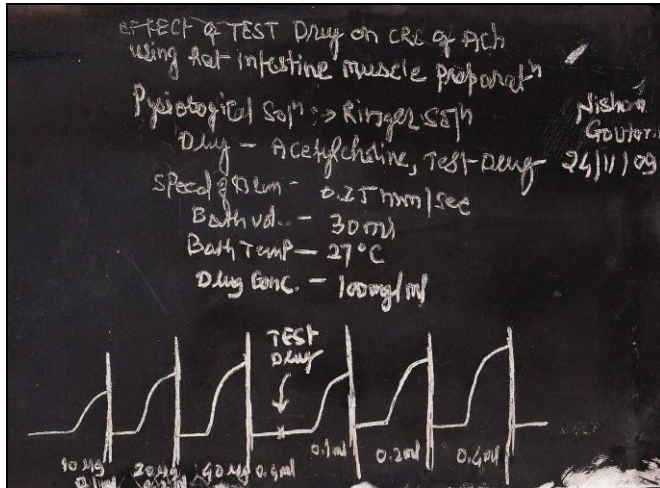 EFFECT of TEST Drug on CRC of ACh
using Rat intestine muscle preparatⁿ
Pysiological Solⁿ :-> Ringer Solⁿ
Nishan
Drug - Acetylcholine, Test-Drug
24/11/09
Speed of Drum - 0.25 mm/sec
Bath vol. - 30 ml
Bath Temp - 27°C
Drug Conc. - 100mg/ml
TEST
Drug
10 μg
20 μg
40 μg
0.4ml
0.1ml
0.2ml
0.4ml
0.1ml